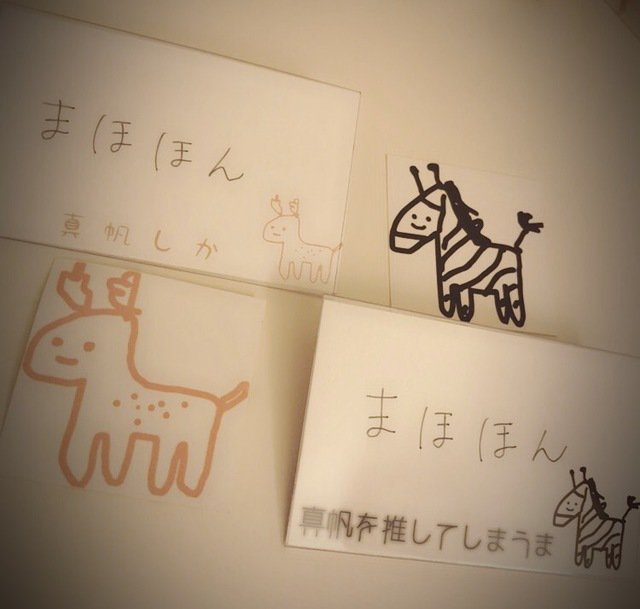 まほほん
真帆しか
まほほん
真帆を推してしまうま